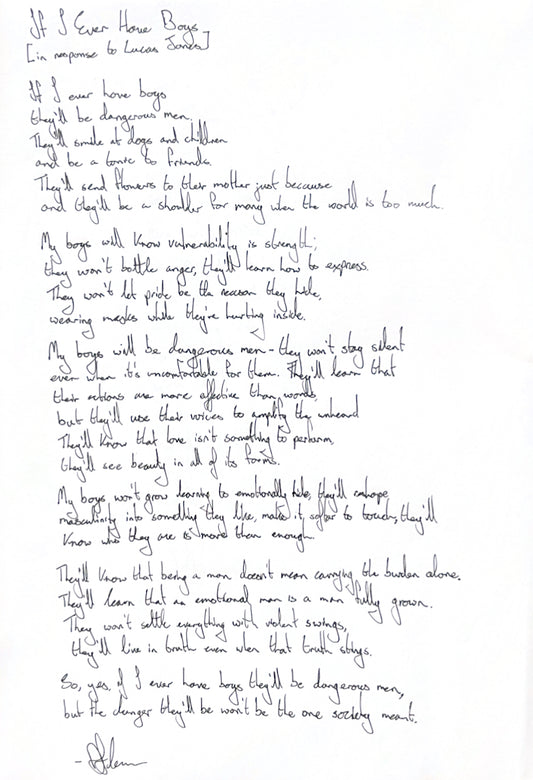 If I Ever Have Boys
[in response to Lucas Jones]
If I ever have boys
they'll be dangerous men.
They'll smile at dogs and children
and be a tonic to friends.
They'll send flowers to their mother just because
and they'll be a shoulder for many when the world is too much.
My boys will know vulnerability is strength;
they won't bottle anger, they'll learn how to express.
They won't let pride be the reason they hide,
wearing masks while they're hurting inside.
My boys will be dangerous men - they won't stay silent
even when it's uncomfortable for them. They'll learn that
their actions are more affective than words,
but they'll use their voices to amplify the unheard
They'll know that love isn't something to perform,
they'll see beauty in all of its forms.
My boys won't grow learning to emotionally hide, they'll reshape
masculinity into something they like, make it softer to touch, they'll
know who they are is more than enough.
They'll know that being a man doesn't mean carrying the burden alone.
They'll learn that an emotional man is a man fully grown.
They won't settle everything with violent swings,
they'll live in truth even when that truth stings.
So, yes, if I ever have boys they'll be dangerous men,
but the danger they'll be won't be the one society meant.